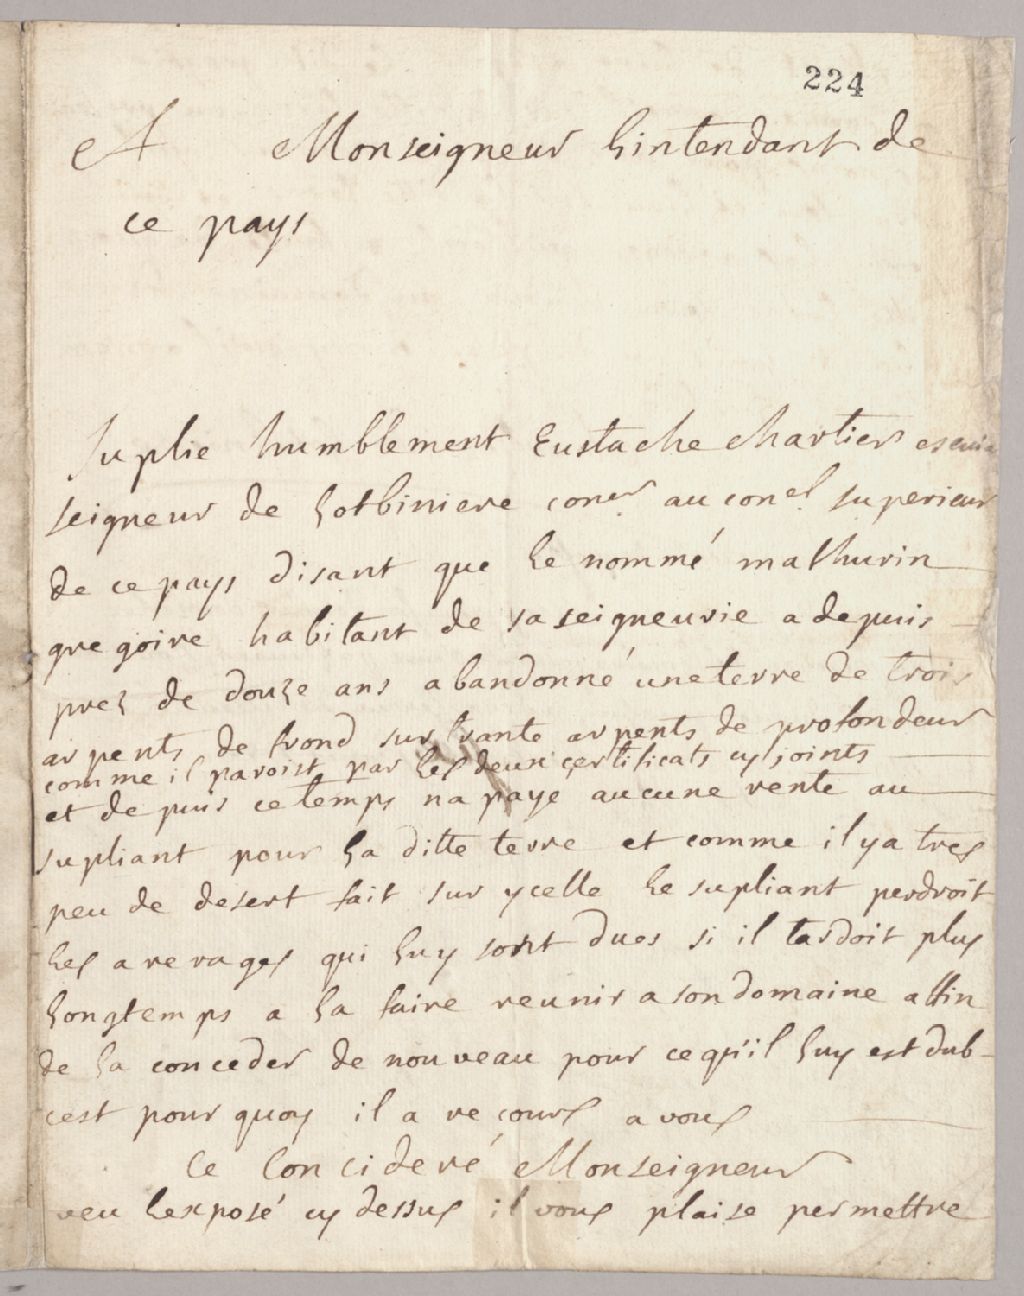 224
A Monseigneur Lintendant de
ce pays
Suplie humblement Eustache chartier
seigneur de Lotbiniere coner. au conel. superieur
de ce pays disant que le nommé mathurin
gregoire habitant de sa seigneurie a depuis
prez de douze ans abandonné une terre de trois
arpents de frond sur trante arpents de profondeur
comme il paroist par les deux certificats cy joints
et depuis ce temps na payé aucune rente au
supliant pour la ditte terre et comme il y a tres
peu de desert fait sur ycelle le supliant perdroit
les arerages qui luy sont dues si il tardoit plus
longtemps a la faire reunir a son domaine affin
de la conceder de nouveau pour ce qu'il luy est dub
cest pour quoy il a recours a vous
Ce Concideré Monseigneur
veu lexposé cy dessus il vous plaise permettre